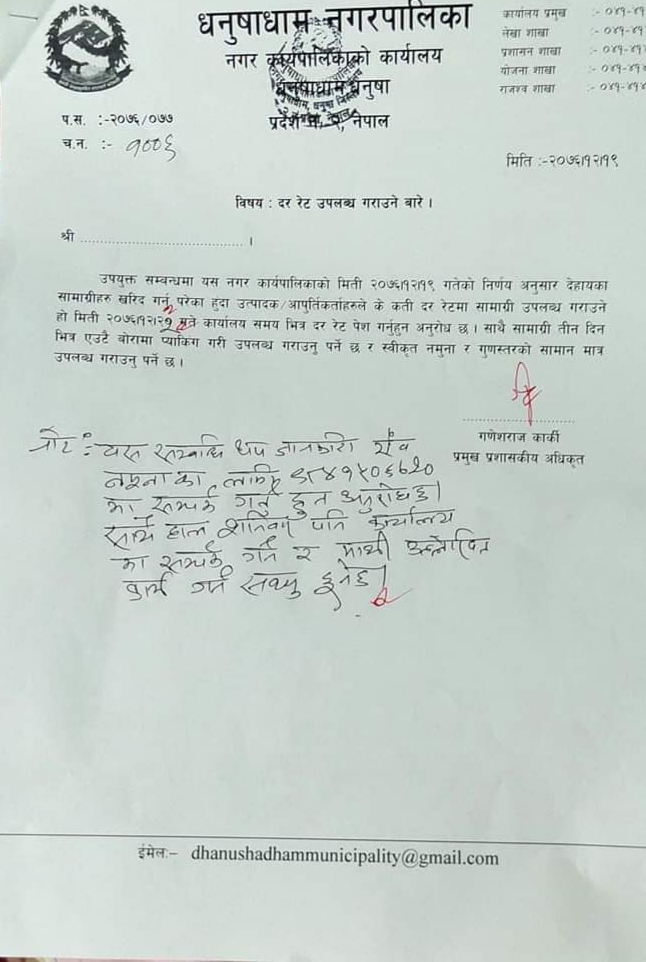 धनुषाधाम नगरपालिका
नगर कार्यपालिकाको कार्यालय
धनुषाधाम, धनुषा
प्रदेश नं. २, नेपाल
कार्यालय प्रमुख :- ०४१-४१
लेखा शाखा :- ०४१-४१
प्रशासन शाखा :- ०४१-४१
योजना शाखा :- ०४१-४१
राजश्व शाखा :- ०४१-४१
प.स. :-२०७६/०७७
च.न. :- १००६
मिति :-२०७६।१२।१९
विषय : दर रेट उपलब्ध गराउने बारे ।
श्री ........................................ ।
उपयुक्त सम्बन्धमा यस नगर कार्यपालिकाको मिती २०७६।१२।१९ गतेको निर्णय अनुसार देहायका
सामाग्रीहरु खरिद गर्नु परेका हुदा उत्पादक/आपुर्तिकर्ताहरुले के कती दर रेटमा सामाग्री उपलब्ध गराउने
हो मिती २०७६।१२।२१ गते कार्यालय समय भित्र दर रेट पेश गर्नुहुन अनुरोध छ । साथै सामाग्री तीन दिन
भित्र एउटै बोरामा प्याकिंग गरी उपलब्ध गराउनु पर्ने छ र स्वीकृत नमुना र गुणस्तरको सामान मात्र
उपलब्ध गराउनु पर्ने छ ।
गणेशराज कार्की
प्रमुख प्रशासकीय अधिकृत
नोट: यस सम्बन्धि थप जानकारी एंव
नमूना का लागि
मा सम्पर्क गर्नु हुन अनुरोध छ।
साथै हाल शनिवार पनि कार्यालय
मा सम्पर्क गर्न र माथी उल्लेखित
कार्य गर्न सक्नु हुनेछ।
इमेल:– dhanushadhammunicipality@gmail.com